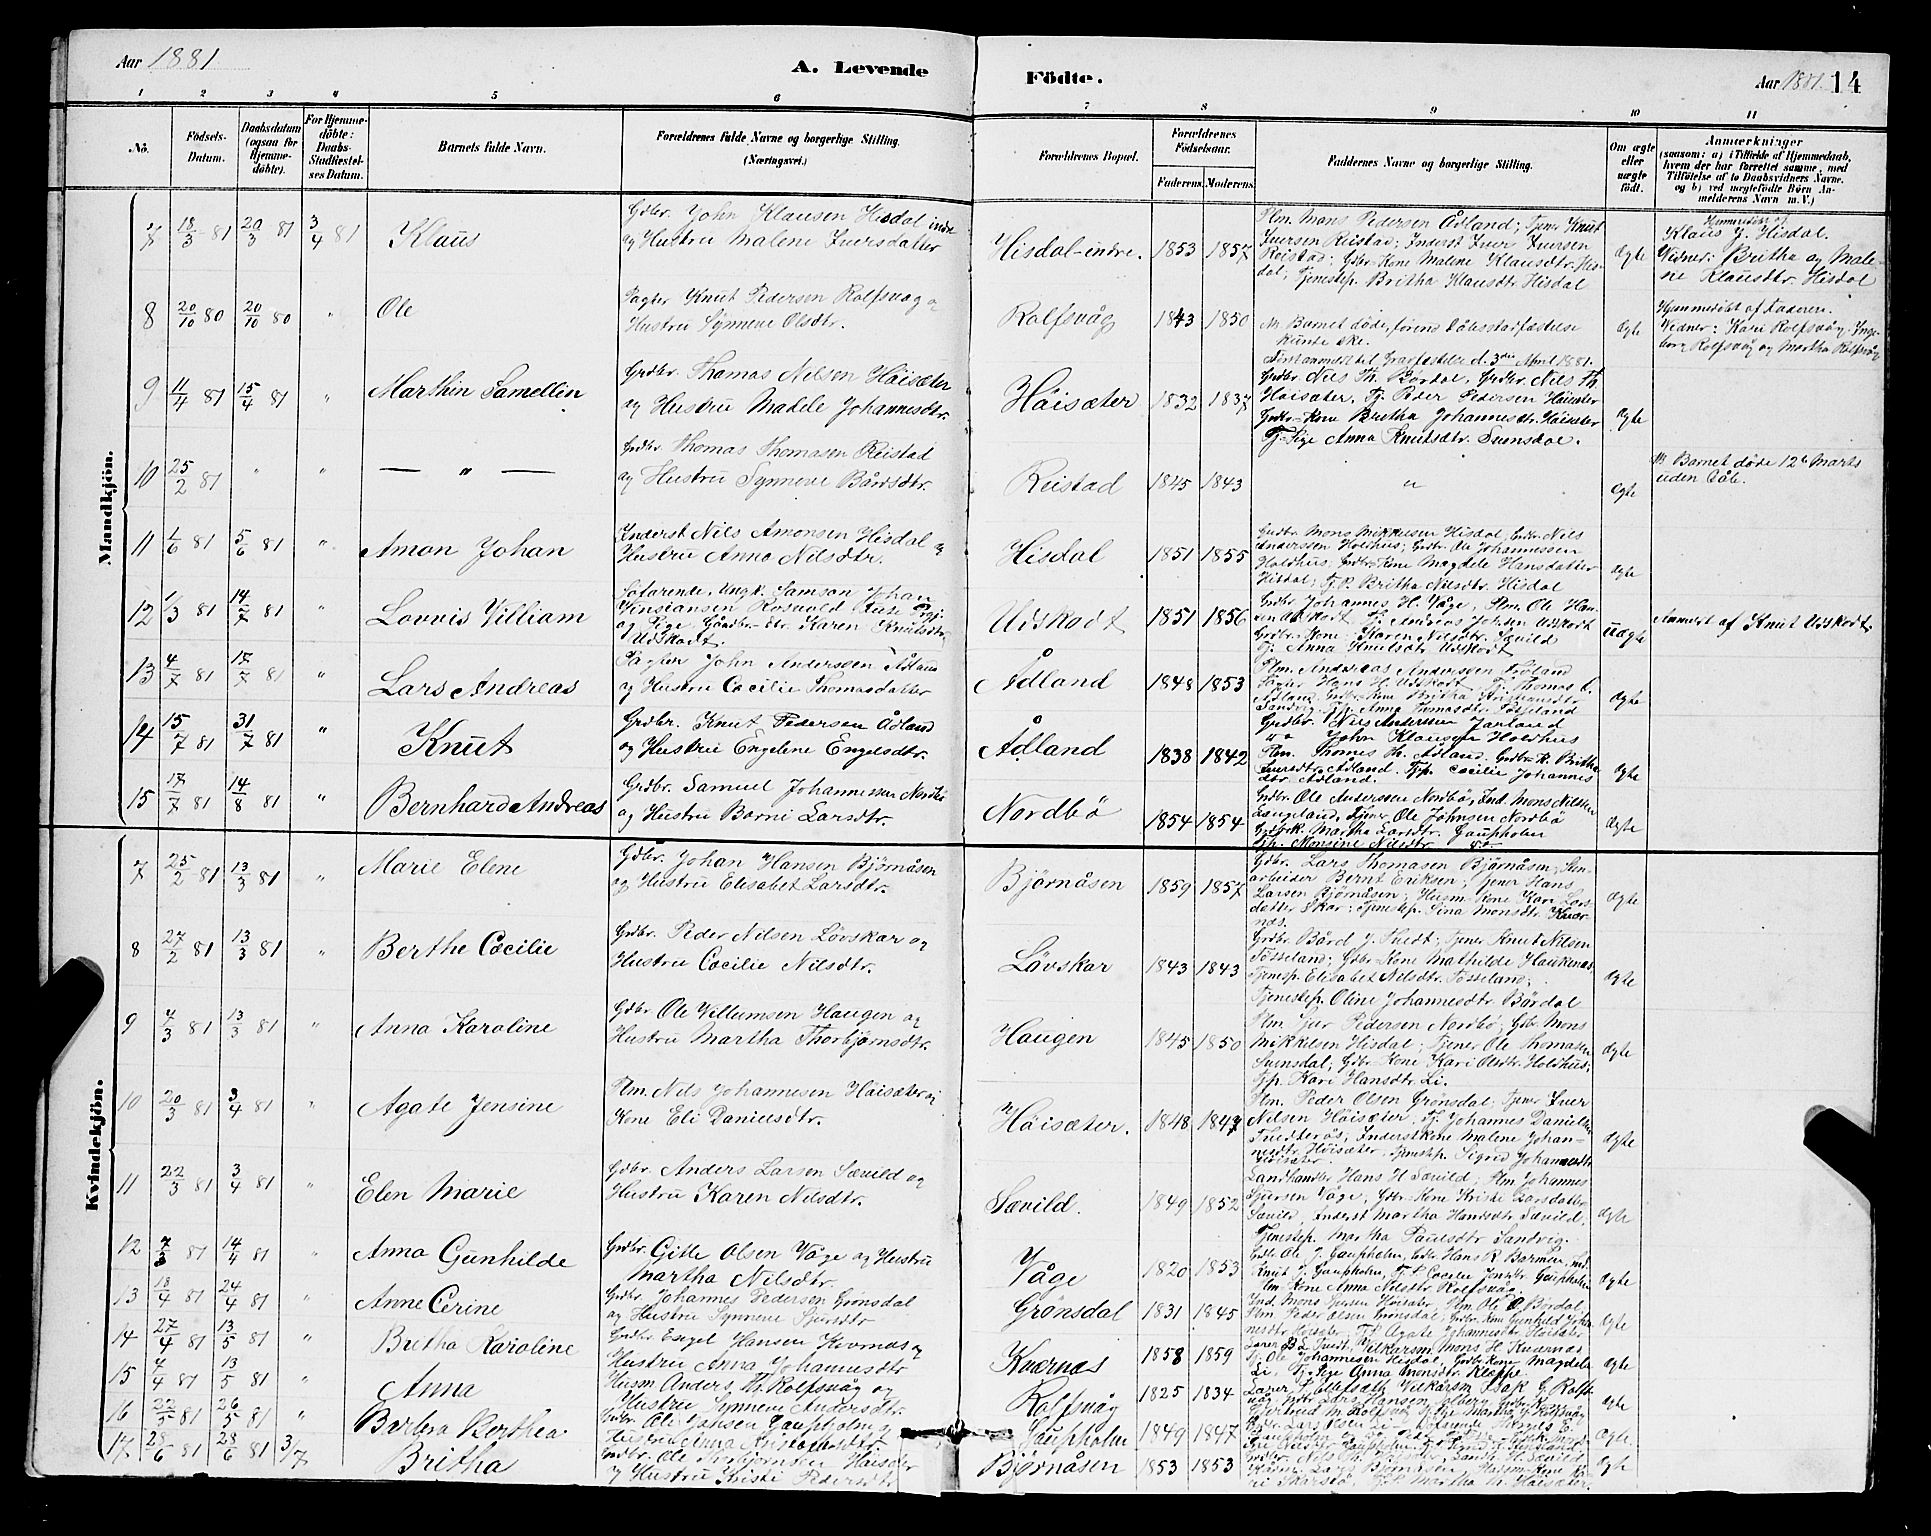 Aar 1881
A. Levende
Födte.
Aar 1881. 14
1 2 3 4 5 6 7 8 9 10 11
No.
Födsels-Datum.
Daabsdatum (ogsaa for Hjemme-döbte).
For Hjemme-döbte: Daabs-Stadfæstel-ses Datum.
Barnets fulde Navn.
Forældrenes fulde Navne og borgerlige Stilling.
(Næringsvei.)
Forældrenes Bopæl.
Forældrenes Födselsaar.
Faderens. Moderens.
Faddernes Navne og borgerlige Stilling.
Om ægte eller uægte födt.
Anmærkninger
(saasom: a) i Tilfælde af Hjemmedaab,
hvem der har forrettet samme, med
Tilföielse af to Daabsvidners Navne,
og b) ved uægtefödte Börn An-
melderens Navn m. V.)
Mandkjön.
7 18/3 81 20/3 81 3/4 81 Klaus
Gdbr. John Klausen Hisdal indre
og Hustru Malene Iversdatter
Hisdal-indre. 1853 1857
Plm. Mons Pedersen Ådland; Tjener Knut
Iversen Reistad; Inderst Iver Iversen
Reistad; Gdbr. Kone Malene Klausdtr. His-
dal; Tjenestep. Britha Klausdtr Hisdal
Ægte
Hjemmedöbt af
Klaus J. Hisdal.
Vidner: Britha og Male-
ne Klausdtr. Hisdal
8 20/10 80 20/10 80 " Ole
Pagter Knut Pedersen Rolfsvåg og
Hustru Synneve Olsdtr.
Rolfsvåg 1843 1850
Barnet döde, förend Dåbsstadfæstelse
kunde ske.
Ægte
Hjemmedöbt af Faderen.
Vidner: Kari Rolfsvåg, Inge-
borg Rolfsvåg og Martha Rolfsvåg
9 11/4 81 15/4 81 " Marthin Samellin
Grdbr. Thomas Nilsen Höisæter
og Hustru Madele Johannesdtr.
Höisæter 1832 1837
Grdbr. Nils Th. Bördal, Grdbr. Nils Th.
Höisæter, Tj. Peder Pedersen Höisæter
Grdbr-Kone Britha Johannesdtr. Höisæter
Tj-Pige Anna Knutsdtr. Svensdal.
Ægte
10 25/2 81 " " — " —
Grdbr. Thomas Thomasen Reistad
og Hustru Synneve Bårdsdtr.
Reistad 1845 1843 "
Ægte
Barnet döde 12te Marts
uden Dåb.
11 1/6 81 5/6 81 " Amon Johan
Inderst Nils Amonsen Hisdal og
Hustru Anna Nilsdtr.
Hisdal 1851 1855
Grdbr Mons Mikkelsen Hisdal, Grdbr. Nils
Anderssen Holdhus; Grdbr. Ole Johannessen
Holdhus; Grdbr-Kone Magdele Hansdatter
Hisdal; Tj.P. Britha Nilsdtr. Hisdal
Ægte
12 1/3 81 14/7 81 " Lovvis Villiam
Söfarende, Ungk. Samson Johan
og Pige Gårdbr-dtr. Karen Knutsdtr.
Udskodt.
Udskodt 1851 1856
Grdbr. Johannes H. Våge, Plm. Ole Han-
sen Udskodt Tj. Andreas Johsen Udskodt
Grdbr-Kone Karen Nilsdtr. Sævild
Tj. Anna Knutsdtr Udskodt
Uægte
Anmeldt af Knut Udskodt
13 4/7 81 17/7 81 " Lars Andreas
Pagter John Andersen Ådland
og Hustru Cæcilie Thomasdatter
Ådland 1848 1853
Plm. Andreas Anderssen
Ægte
14 15/7 81 31/7 81 " Knut
Grdbr. Knut Pedersen Ådland
og Hustru Engelene Engelsdtr.
Ådland 1838 1842
Grdbr. Nils Anderssen
John Klausen Holdhus
Plm. Thomas H. Ådland. Grdbr-K. Britha
Iversdtr. Ådland. Tjp. Cæcilie Johannes
dtr. Ådland.
Ægte
15 17/7 81 14/8 81 " Bernhard Andreas
Grdbr. Samuel Johannessen Nordbö
og Hustru Borni Larsdtr.
Nordbö 1854 1854
Grdbr. Ole Anderssen Nordbö, Ind. Mons Nilsen
Langeland, Tjener Ole Johnsen Nordbö
Grdbrk. Martha Larsdtr. Gaupholm
Tjp. Monsine Nilsdtr
Ægte
Kvindekjön.
7 25/2 81 13/3 81 " Marie Elene
Gdbr. Johan Hansen Björnåsen
og Hustru Elisabet Larsdtr.
Björnåsen 1859 1857
Gdbr. Lars Thomasen Björnåsen; Sten-
arbeider Bernt Eriksen; Tjener Hans
Larsen Björnåsen; Husm. Kone Kari Lars-
datter Skar; Tjenestep. Sina Monsdtr. Kvær-
næs.
Ægte
8 27/2 81 13/3 81 " Berthe Cæcilie
Grdbr. Peder Nilsen Lövskar og
Hustru Cæcilie Nilsdtr.
Lövskar 1843 1843
Grdbr. Bård J. Tvedt; Tjener Knut Nilsen
Tösseland; Gdbr-Kone Mathilde Haukenæs,
Tjenestp. Elisabet Nilsdtr. Tösseland;
Tjenestep. Oline Johannesdtr. Bördal
Ægte
9 4/3 81 13/3 81 " Anna Karoline
Gdbr Ole Villumsen Haugen og
Hustru Martha Thorbjörnsdtr.
Haugen 1845 1850
Plm. Sjur Pedersen Nordbö; Gdbr. Mons
Mikkelsen Hisdal; Tjener Ole Thomasen
Svensdal; Gdbr. Kone Kari Olsdtr. Holdhus;
Tjp. Kari Hansdtr. Li.
Ægte
10 20/3 81 3/4 81 " Agate Jensine
Plm. Nils Johannesen Höisæter og
Kone Eli Danielsdtr.
Höisæter. 1848 1847
Plm. Peder Olsen Grönsdal, Tjener Iver
Nilsen Höisæter, Tj. Johannes Danielsen
Tvedterås, Inderstkone Malene Johan-
nesdtr. Höisæter. Tjenestep. Sigrid Johannesdtr
Höisæter.
Ægte
11 22/3 81 3/4 81 " Elen Marie
Gdbr. Anders Larsen Sævild og
Hustru Karen Nilsdtr.
Sævild. 1849 1852
Landhandler Hans H. Sævild, Plm Johannes
Sjursen Våge, Gdbr-Kone Kristi Larsdatter
Sævild, Inderst Martha Hansdtr. Sævild,
Tjenestep. Martha Paulsdtr Sandvig.
Ægte
12 7/3 81 14/4 81 " Anna Gunhilde
Grdbr. Gitle Olsen Våge og Hustru
Martha Nilsdtr.
Våge 1820 1853
Grdbr Ole J. Gaupholm, Grdbr. Hans R Barmen, Ind.
Knut J. Gaupholm, Tj.P. Cæcilie Gaupholm
Plm. Kone Anna Nilsdtr Rolfsvåg
Ægte
13 18/4 81 24/4 81 " Anne Cerine
Grdbr. Johannes Pedersen Grönsdal
og Hustru Synneve Sjursdtr
Grönsdal 1831 1845
Ind. Mons Höisæter, Plm. Ole Bördal,
Plm. Peder Olsen Grönsdal, Grdbr. Kone Gunhild Johan-
nesdtr Höisæter, Tj.P. Agate Johannesdtr Höisæter
Ægte
14 27/4 81 13/5 81 " Britha Karoline
Grdbr. Engel Hansen Kværnæs og
Hustru Anna Johannesdtr
Kværnæs 1858 1859
Lærer B L Tvedt, Vilkårsm. Mons H. Kværnæs
Tj. Ole Johannesen Hisdal, Grdbr Kone Magdela
Li, Tj-Pige Anna Monsdtr. Kleppe.
Ægte
15 4/4 81 13/5 81 " Anna
Husm. Anders Th. Rolfsvåg og
Hustru Synneve Andersdtr.
Rolfsvåg 1825 1834
Ægte
16 22/5 81 26/5 81 " Barbra Berthea
Grdbr. Ole Johsen Gaupholm og
Hustru Anna
Gaupholm 1849 1847
Ægte.
17 28/6 81 28/6 81 3/7 Britha
Grdbr. Ole Torbjörnsen Höisæter
og Hustru Kristi Pedersdtr
Björnåsen 1853 1853
Ægte